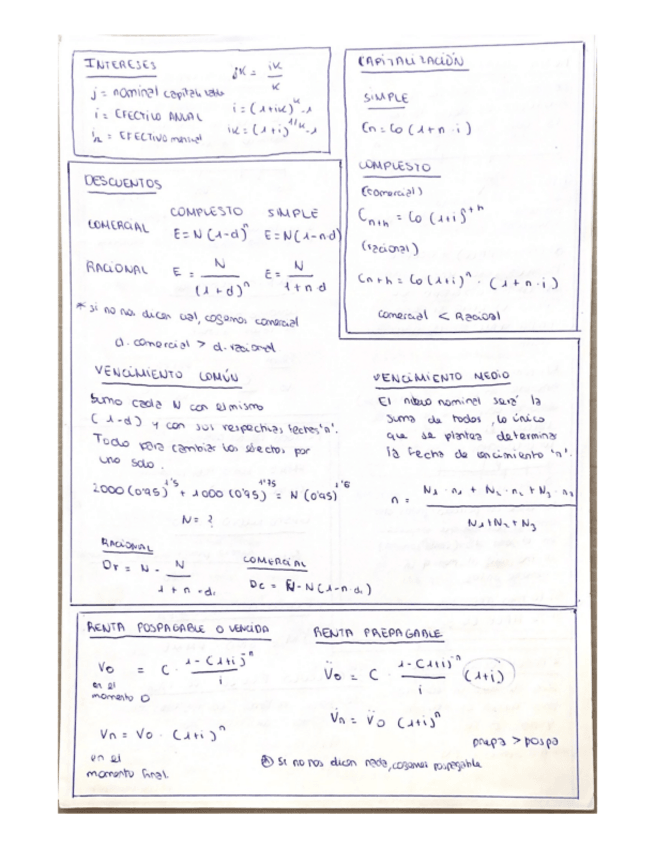 INTERESES
jK = iK / K
j = nominal capitaliz
i = EFECTIVO ANUAL
i = (1+iK)^K - 1
i12 = EFECTIVO mensual
iK = (1+i)^1/K - 1
CAPITALIZACIÓN
SIMPLE
Cn = Co (1+n·i)
COMPUESTO
(comercial)
Cn+h = Co (1+i)^n+h
(racional)
Cn+h = Co (1+i)^n · (1+n·i)
comercial < Racional
DESCUENTOS
COMPUESTO SIMPLE
COMERCIAL E=N(1-d)^n E=N(1-n·d)
RACIONAL E = N / (1+d)^n E = N / 1+n·d
* si no nos dicen cual, cogemos comercial
d. comercial > d. racional
VENCIMIENTO COMÚN
Sumo cada N con el mismo
(1-d) y con sus respectivas fechas 'n'.
Todo para cambiar los efectos por
uno solo.
2000 (0'95)^1'5 + 1000 (0'95)^1'75 = N (0'95)^1'6
N = ?
VENCIMIENTO MEDIO
El nuevo nominal será la
suma de todos, lo único
que se plantea determinar
la fecha de vencimiento 'n'.
n = N1·n1 + N2·n2 + N3·n3 / N1+N2+N3
RACIONAL
Dr = N - N / 1+n·d
COMERCIAL
Dc = N - N(1-n·d)
RENTA POSPAGABLE O VENCIDA
V0 = C · 1-(1+i)^-n / i
en el
momento 0
Vn = V0 · (1+i)^n
en el
momento final.
RENTA PREPAGABLE
V̈0 = C · 1-(1+i)^-n / i (1+i)
V̈n = V̈0 (1+i)^n
prepa > pospa
* Si no nos dicen nada, cogemos pospagable